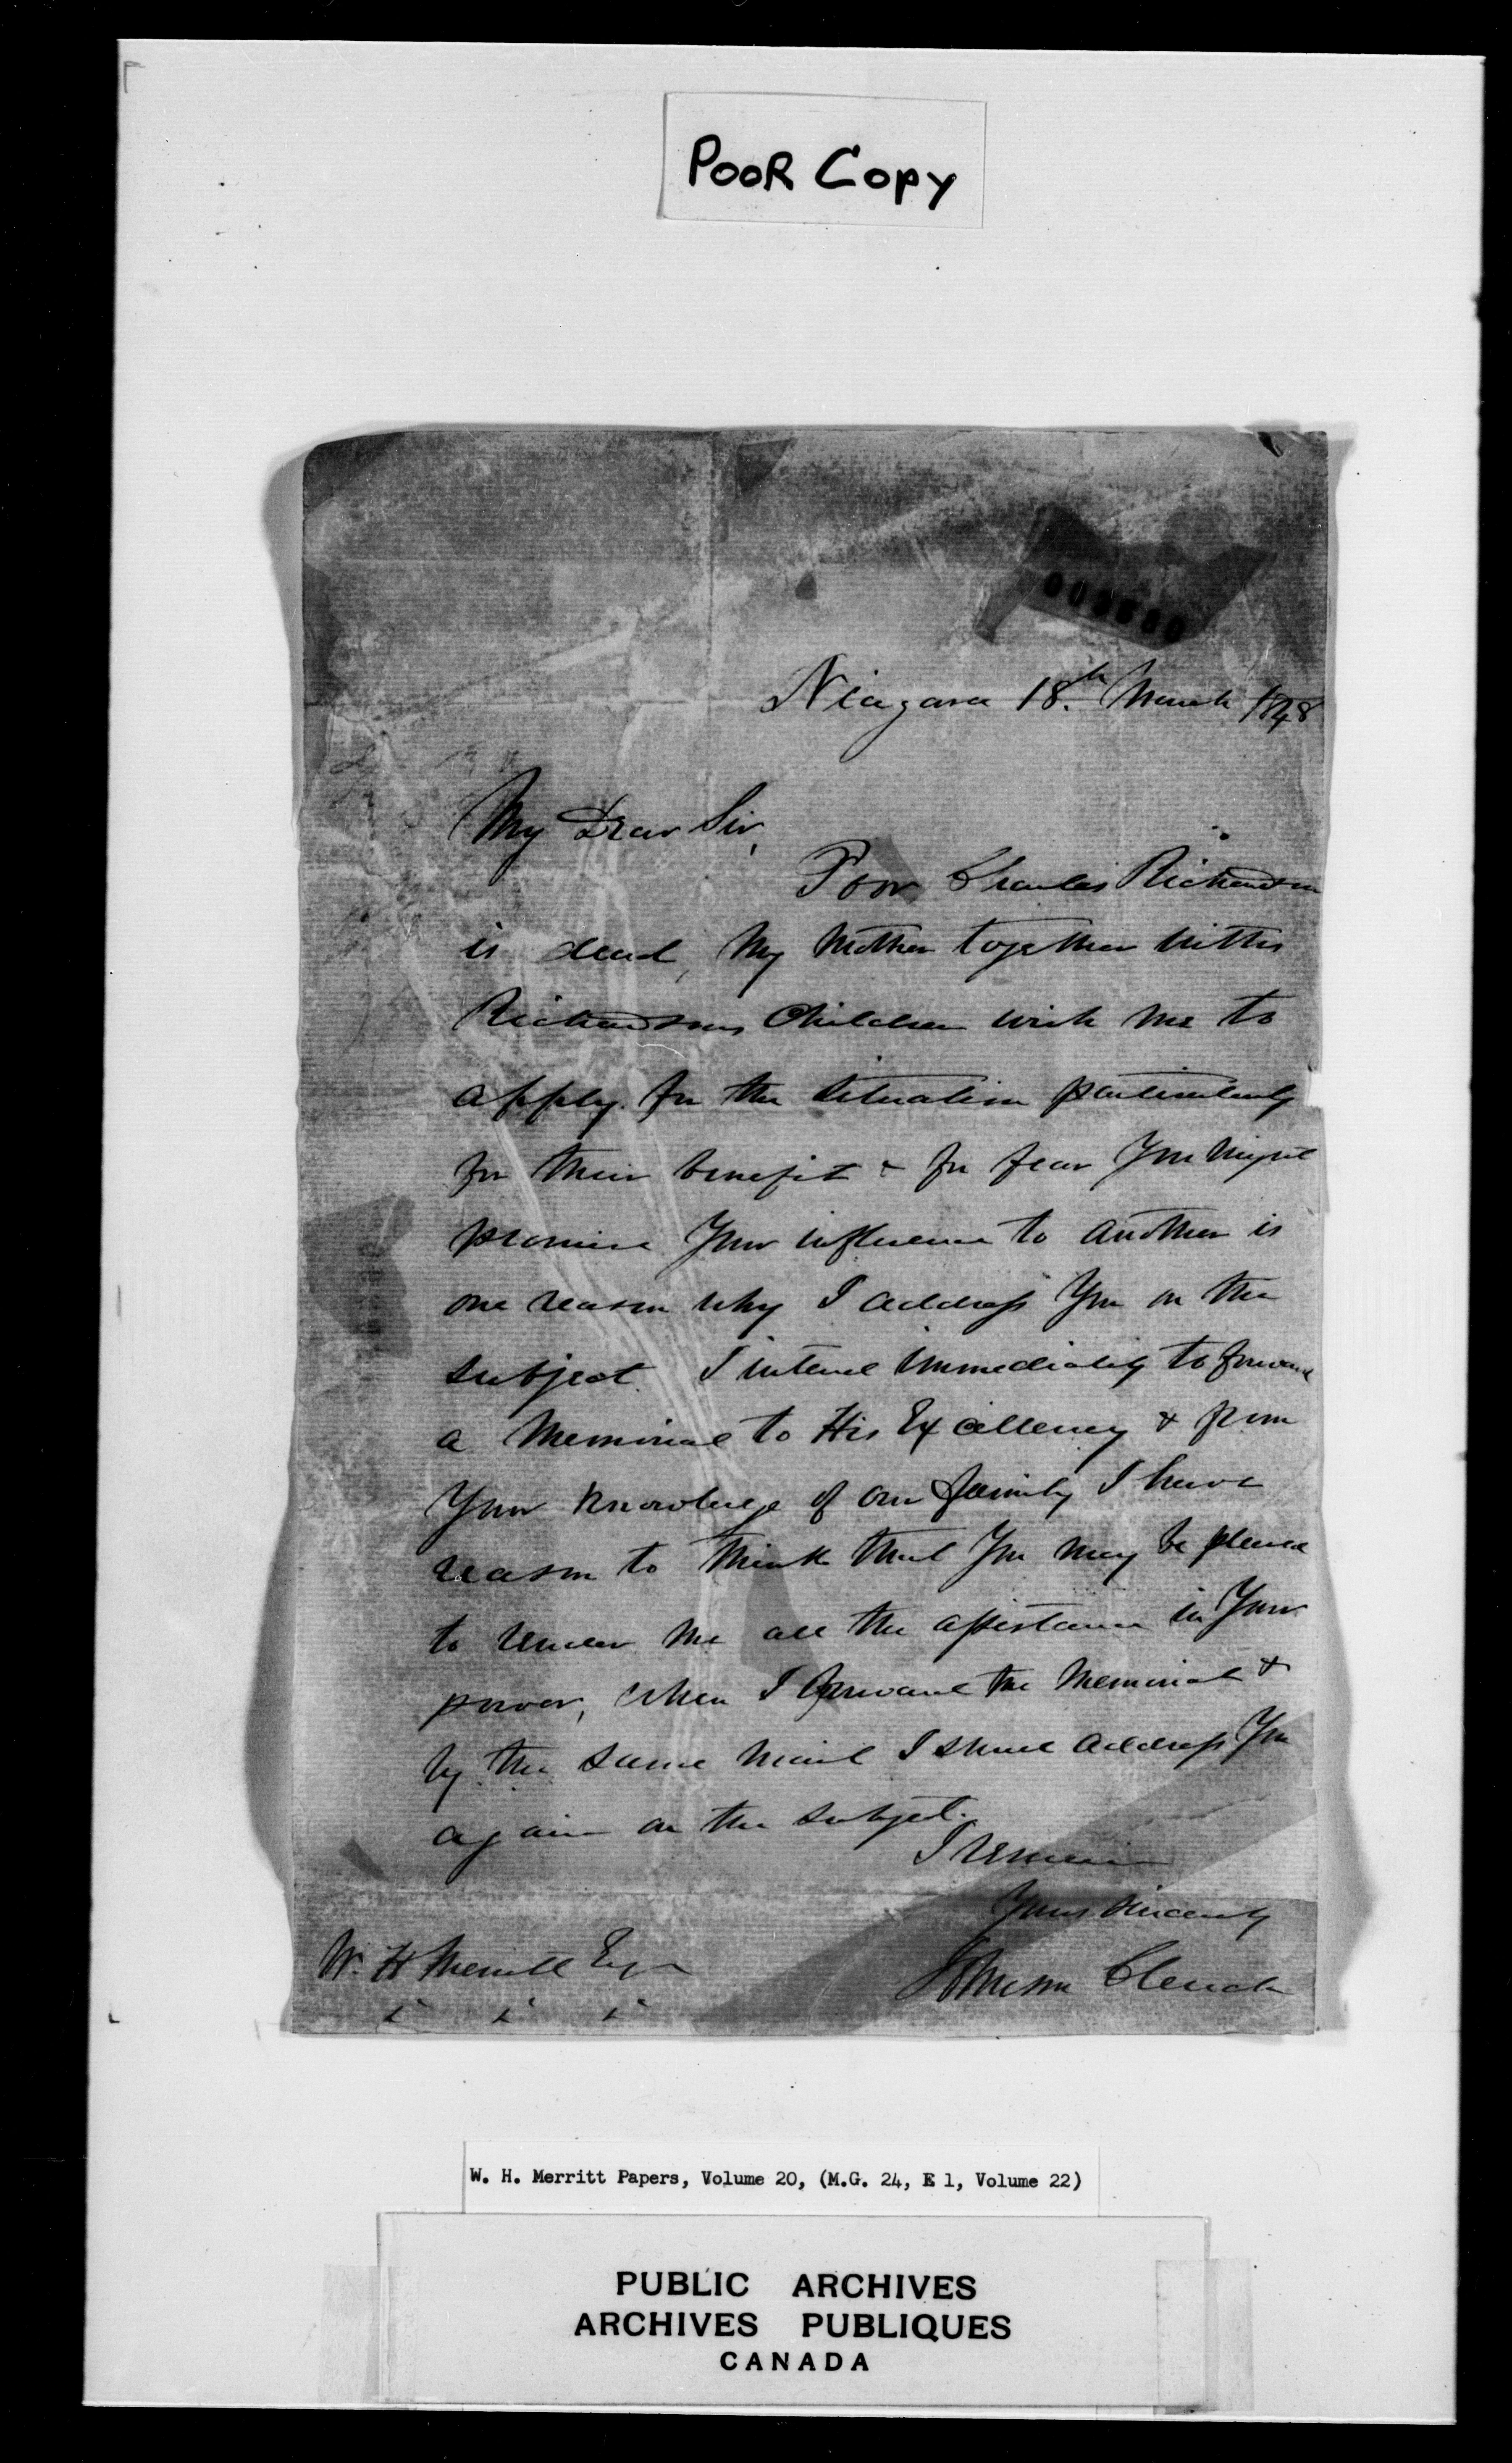 POOR COPY
Niagara 18.th March 1848
My Dear Sir,
Poor Charles Richardson
is dead, My Mother together with
Richardsons Children wish me to
apply for the situation particularly
for their benefit & for fear You might
promise Your influence to another is
one reason why I address You on the
subject. I intend immediately to forward
a Memorial to His Excellency & from
Your knowledge of our family I have
reason to think that You may be pleased
to render me all the assistance in Your
power, when I forward the Memorial &
by the same Mail I shall address You
again on the subject.
I remain
Yours sincerely
Johnson Clench
W. H Merritt Esqr
W. H. Merritt Papers, Volume 20, (M.G. 24, E 1, Volume 22)
PUBLIC ARCHIVES
ARCHIVES PUBLIQUES
CANADA